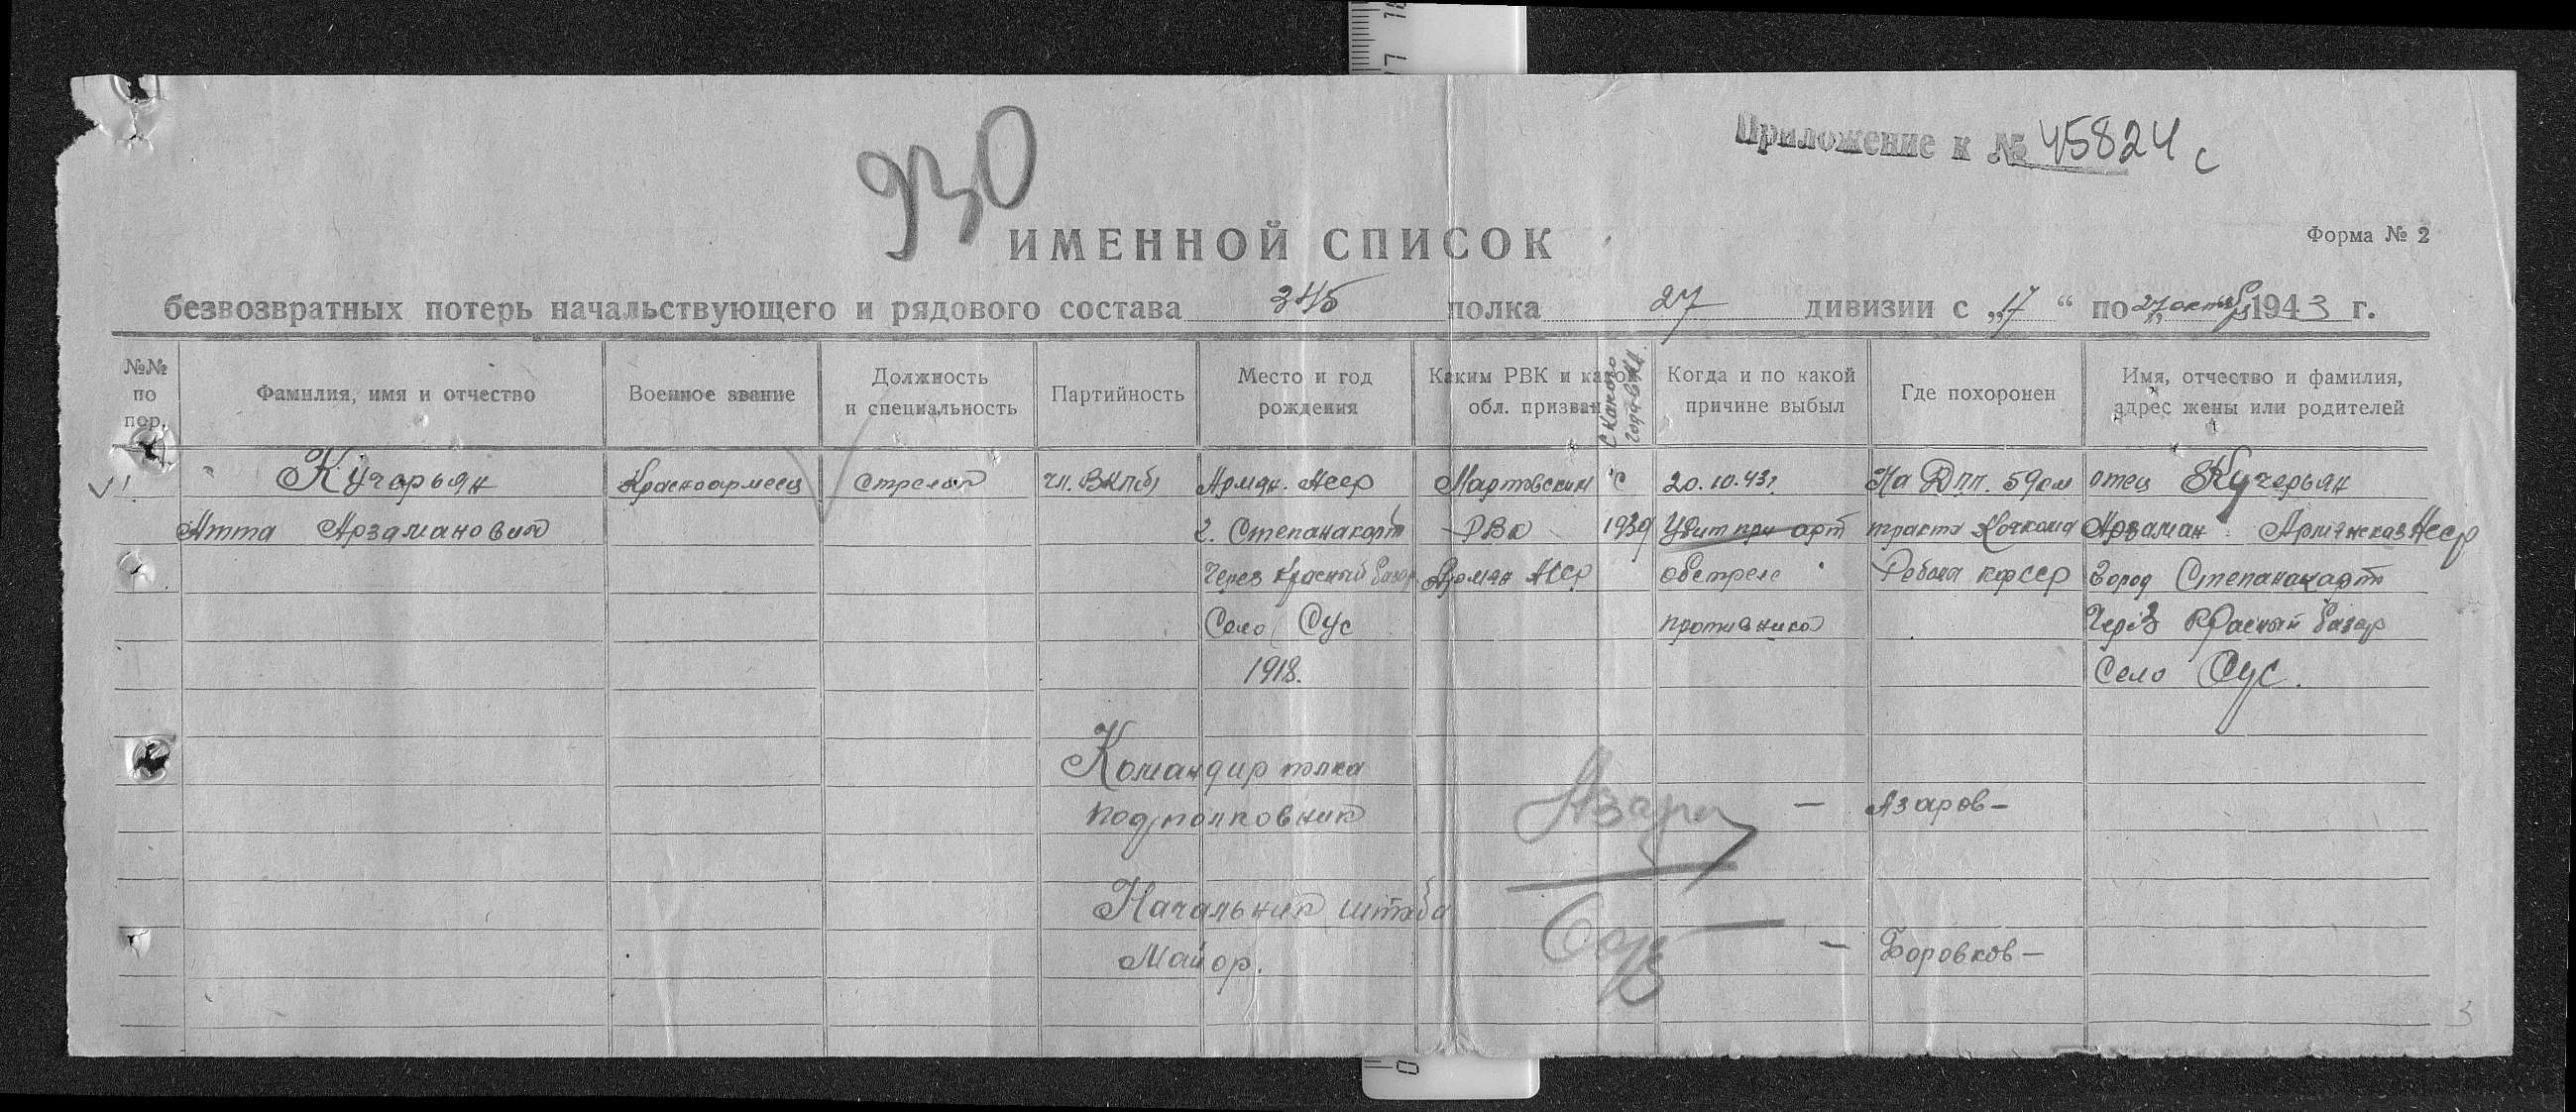 Приложение к № 45824с
930
ИМЕННОЙ СПИСОК
Форма № 2
безвозвратных потерь начальствующего и рядового состава 345 полка 27 дивизии с „17“ по „27“ октяб 1943 г.
№№ по пор.
Фамилия, имя и отчество
Военное звание
Должность и специальность
Партийность
Место и год рождения
Каким РВК и какой обл. призван
С какого года в К.А.
Когда и по какой причине выбыл
Где похоронен
Имя, отчество и фамилия, адрес жены или родителей
1. Кучерьян Красноармеец Стрелок чл. ВКП(б) Армян. Асср Мартовский с 20.10.43г. На Дпп. 59 км отец Кучерьян
Атта Арзаманович г. Степанакерт РВК 1939 Убит при арт тракта Кочкома Арзаман Армянская Асср
Через Красный базар Армян Асср обстреле Ребола кфсср город Степанакерт
Село Сус противника Через Красный базар
1918. Село Сус.
Командир полка
подполковник Азаров — Азаров —
Начальник штаба
Майор. — Боровков —
3
7
0